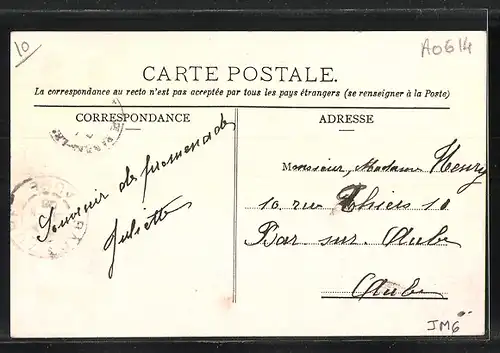 10
A0614
CARTE POSTALE.
La correspondance au recto n'est pas acceptée par tous les pays étrangers (se renseigner à la Poste)
CORRESPONDANCE
ADRESSE
Souvenir de promenade
Juliette
Monsieur, Madame Henry
10 rue Thiers 10
Bar sur Aube
Aube
JM6